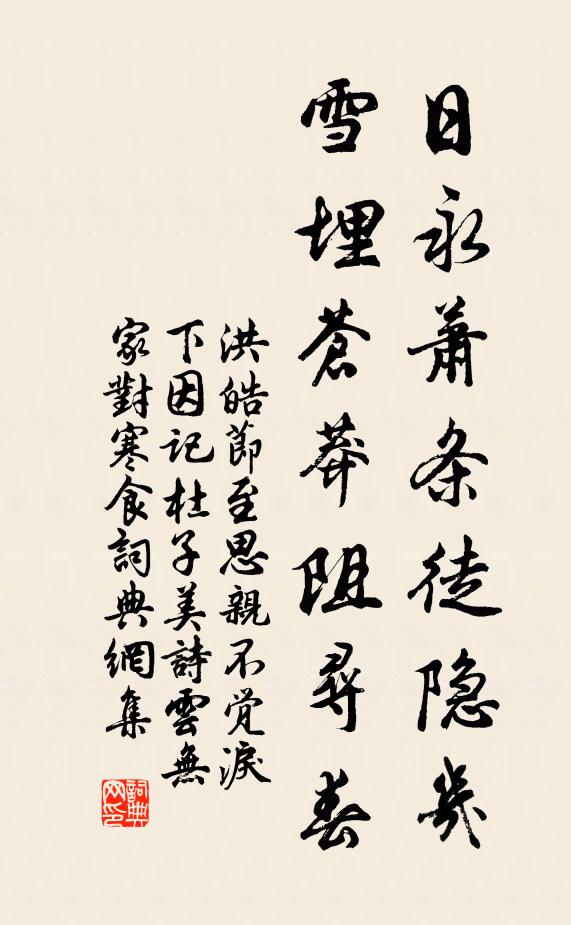 日永蕭条徒隐几
雪埋蒼莽阻尋春
洪皓節至思親不覚淚
下因记杜子美詩雲無
家對寒食詞典網集
詞典网印